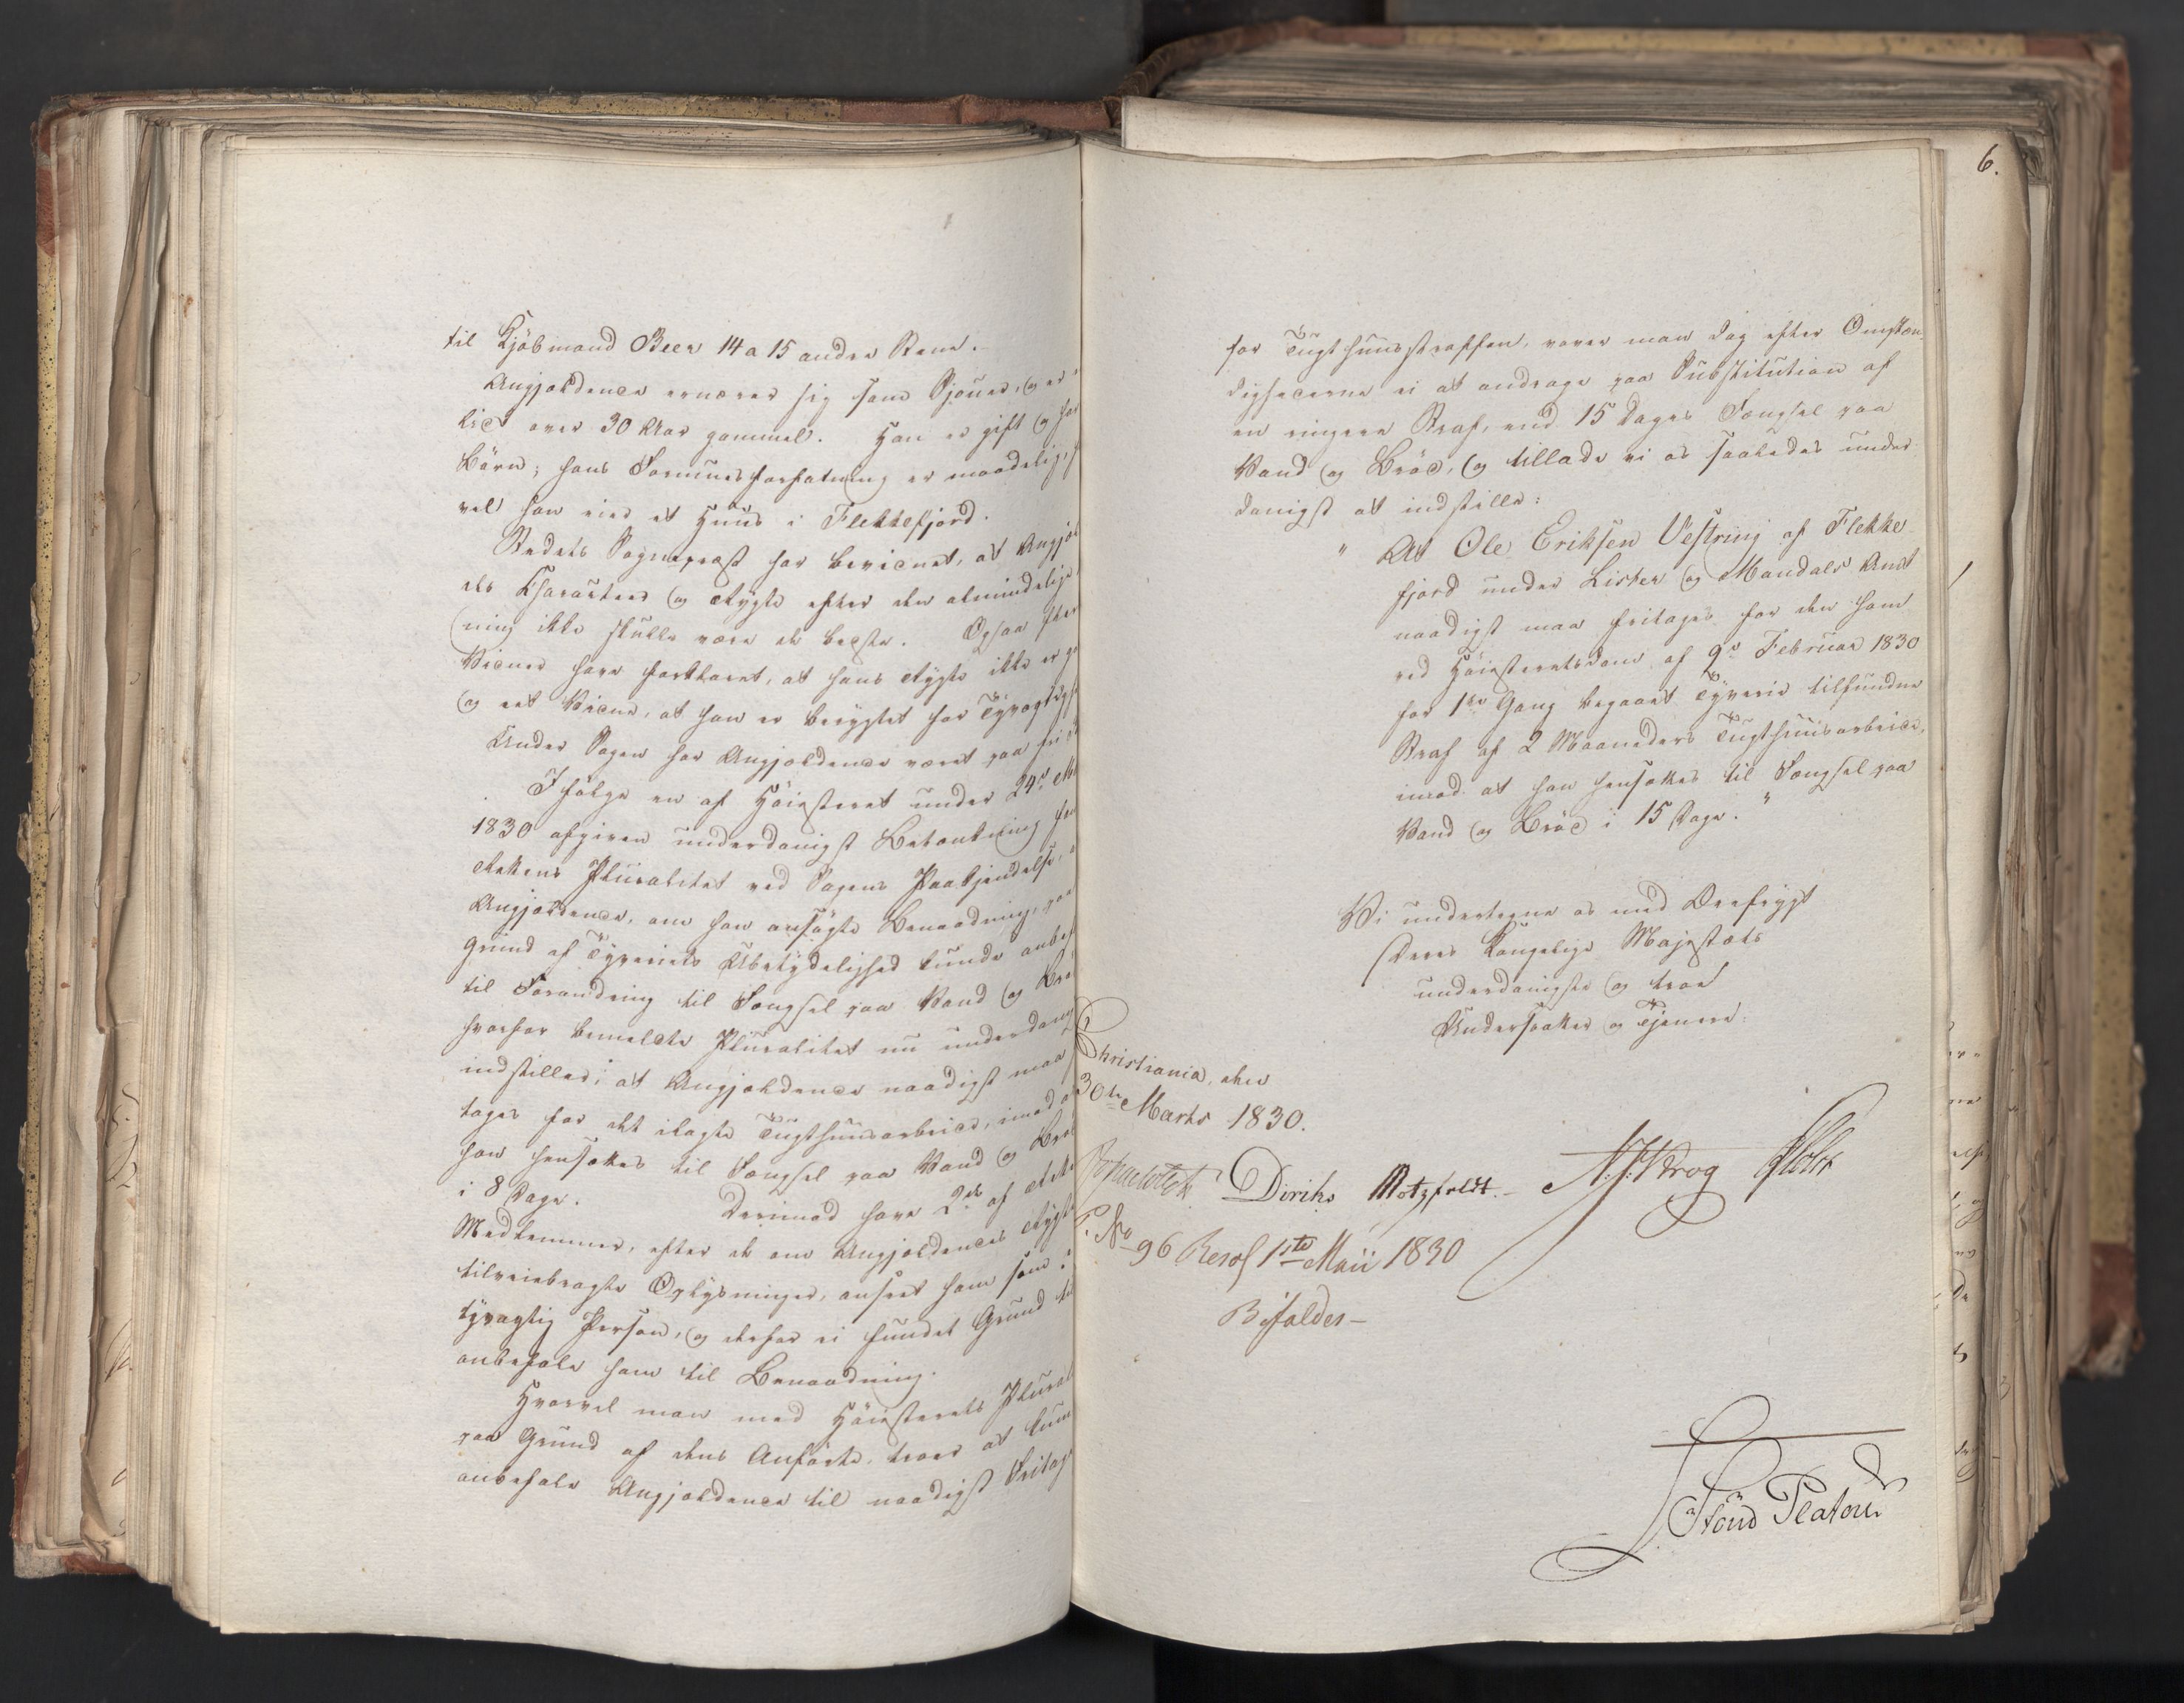 til Kjöbmand Beer 14 a 15 andre Stene.
Angjeldende ernærer sig som Sjouer, og er
lidt over 30 Aar gammel. Han er gift og har
Börn; hans Formuesforfatning er maadelig,
vel han eier et Huus i Flekkefjord.
Stedets Sognepræst har bevidnet, at Angjel
des Charakteer og Rygte efter den almindelige
ning ikke skulle være de bedste. Ogsaa flere
Vidner have forklaret, at hans Rygte ikke er
og eet Vidne, at han er berygtet for Tyvagtighed
Under Sagen har Angjeldende været paa fri
Ifölge en af Höiesteret under 24de
1830 afgiven underdanigst Betænkning
Rettens Pluralitet ved Sagens Paakjendelse,
Angjeldende, om han ansögte Benaadning, paa
Grund af Tyveriets Ubetydelighed kunde anbef
til Forandring til Fængsel paa Vand og Bröd
hvorfor bemeldte Pluralitet nu underdanig
indstiller: at Angjeldende naadigst maa
tages for det ilagte Tugthuusarbeide, imod at
han hensættes til Fængsel paa Vand og Bröd
i 8 Dage. Derimod have 2de af Rettens
Medlemmer, efter de om Angjeldendes Rygte
tilveiebragte Oplysninger, anseet ham som
tyvagtig Person, og derfor ei fundet Grund til
anbefale ham til Benaadning.
Hvorvel man med Höiesterets Plural
paa Grund af dens Anförte, troer at kun
anbefale Angjeldende til naadigst Fritag
6.
for Tugthuusstraffen, vover man dog efter Omstæn-
dighederne ei at andrage paa Substitution af
en ringere Straf, end 15 Dages Fængsel paa
Vand og Bröd, og tillade vi os saaledes under-
danigst at indstille:
"At Ole Eriksen Vestring af Flekke-
fjord under Lister og Mandals Amt
naadigst maa fritages for den ham
ved Höiesteretsdom af 9de Februar 1830
for 1ste Gang begaaet Tyverie tilfundne
Straf af 2 Maaneders Tugthuusarbeide,
imod at han hensættes til Fængsel paa
Vand og Bröd i 15 Dage."
Vi undertegne os med Ærefrygt
Deres Kongelige Majestæts
underdanigste og troe
Undersaatter og Tjenere.
Christiania, den
30te Marts 1830.
Diriks Motzfeldt.- N. J. Krog Holst
P. No 96 Resol 1ste Maii 1830
Bifaldes-
Stoud Platou